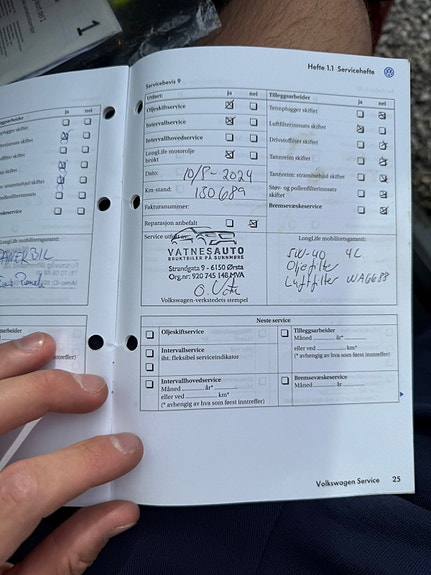 Hefte 1.1 Servicehefte
Servicebevis 9
Utført:
ja
nei
Oljeskiftservice
Intervallservice
Intervallhovedservice
LongLife motorolje
brukt
Dato: 10/8-2024
Km-stand: 150689
Fakturanummer:
Reparasjon anbefalt
Service utført av:
VATNESAUTO
BRUKTBILER PÅ SUNNMØRE
Strandgata 9 - 6150 Ørsta
Org.nr: 920 745 148 MVA
Volkswagen-verkstedets stempel
Tilleggsarbeider
ja
nei
Tennplugger skiftet
Luftfilterinnsats skiftet
Drivstoffilter skiftet
Tannreim skiftet
Tannreim: strammehjul skiftet
Støv- og pollenfilterinnsats
skiftet
Bremsevæskeservice
LongLife mobilitetsgaranti:
5W-40 4L
Oljefilter
Luftfilter
Neste service
Oljeskiftservice
Intervallservice
iht. fleksibel serviceindikator
Intervallhovedservice
Måned år*
eller ved km*
(* avhengig av hva som først inntreffer)
Tilleggsarbeider
Måned år*
eller ved km*
(* avhengig av hva som først inntreffer)
Bremsevæskeservice
Måned år
Volkswagen Service 25
ja
nei
skiftet
LongLife mobilitetsgaranti:
1